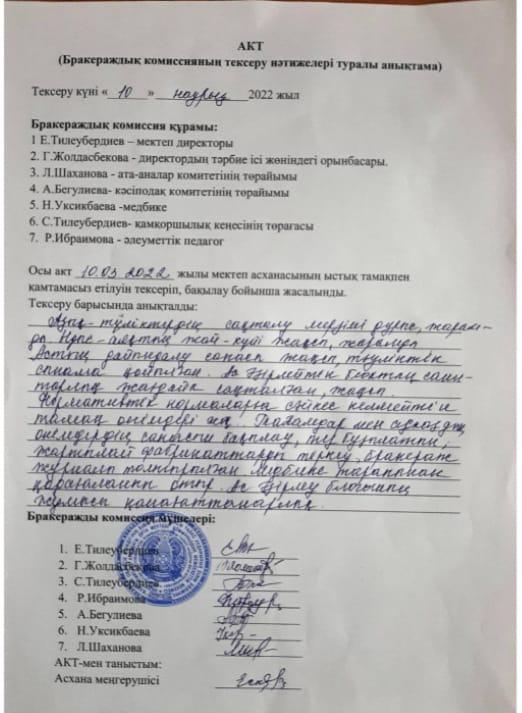 АКТ
(Бракераждық комиссияның тексеру нәтижелері туралы анықтама)
Тексеру күні « 10 » наурыз 2022 жыл
Бракераждық комиссия құрамы:
1 Е.Тилеубердиев – мектеп директоры
2. Г.Жолдасбекова - директордың тәрбие ісі жөніндегі орынбасары.
3. Л.Шаханова - ата-аналар комитетінің төрайымы
4. А.Бегулиева- кәсіподақ комитетінің төрайымы
5. Н.Уксикбаева -медбике
6. С.Тилеубердиев- қамқоршылық кеңесінің төрағасы
7. Р.Ибраимова - әлеуметтік педагог
Осы акт 10.03.2022 жылы мектеп асханасының ыстық тамақпен
қамтамасыз етілуін тексеріп, бақылау бойынша жасалынды.
Тексеру барысында анықталды:
Азық-түліктердің сақталу мерзімі дұрыс, жарам-
ды. жай-күйі жақсы,
Астың дайындалу сапасы жақсы, тәуліктік
сынама қойылған. Ас әзірлейтін блоктың сани-
тарлық жағдайы сақталған, жақсы.
Нормативтік нормаларға сәйкес келмейтін
тамақ өнімдері жоқ. Тағамдар мен
өнімдердің сапасын бақылау,
жартылай фабрикаттарды тексеру, бракераж
журналы толтырылған. Медбике тарапынан
қадағаланып отыр. Ас әзірлеу блогының
жұмысы қанағаттанарлық.
Бракеражды комиссия мүшелері:
1. Е.Тилеубердиев
2. Г.Жолдасбекова
3. С.Тилеубердиев
4. Р.Ибраимова
5. А.Бегулиева
6. Н.Уксикбаева
7. Л.Шаханова
АКТ-мен таныстым:
Асхана меңгерушісі